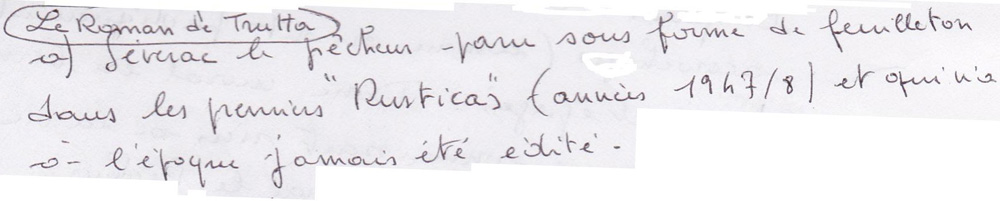 Le Roman de Trutta
a) Séverac le pêcheur - paru sous forme de feuilleton
dans les premiers "Rusticas" (années 1947/8) et qui n'a
à l'époque jamais été édité.